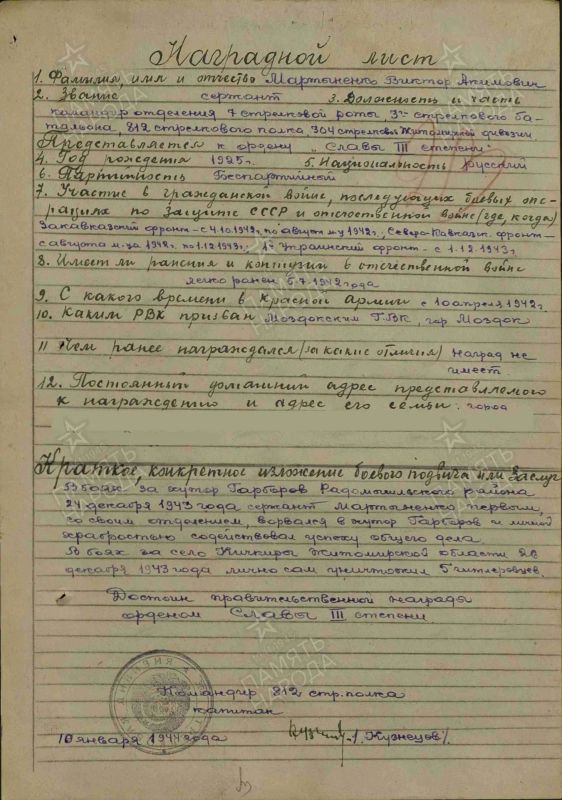 Наградной лист
1. Фамилия, имя и отчество Мартыненко Виктор Акимович
2. Звание сержант 3. Должность и часть
командир отделения 7 стрелковой роты 3го стрелкового ба-
тальона, 812 стрелкового полка 304 стрелков. Житомирской дивизии
Представляется к ордену „Славы III степени"
4. Год рождения 1925 г. 5. Национальность русский
6. Партийность беспартийный
7. Участие в гражданской войне, последующих боевых опе-
рациях по защите СССР и отечественной войне (где, когда)
Закавказский фронт - с 4.10.1942г. по август м-ц 1942г., Северо-Кавказск. фронт-
с августа м-ца 1942г. по 1.12.1943г., 1й Украинский фронт - с 1.12.1943г.
8. Имеет ли ранения и контузии в отечественной войне
легко ранен 5.7.1942 года
9. С какого времени в красной армии с 10 апреля 1942г.
10. Каким РВК призван Моздокским ГВК, гор Моздок
11 Чем ранее награждался (за какие отличия) наград не
имеет.
12. Постоянный домашний адрес представляемого
к награждению и адрес его семьи. город
Краткое, конкретное изложение боевого подвига или заслуг
В боях за хутор Гарборов Радомышльского района
24 декабря 1943 года сержант Мартыненко первым,
со своим отделением, ворвался в хутор Гарборов и личной
храбростью содействовал успеху общего дела.
В боях за село Кичкиры Житомирской области 28
декабря 1943 года лично сам уничтожил 5 гитлеровцев.
Достоин правительственной награды
орденом Славы III степени
Командир 812 стр. полка
капитан
10 января 1944 года /Кузнецов/.
ПАМЯТЬ
НАРОДА